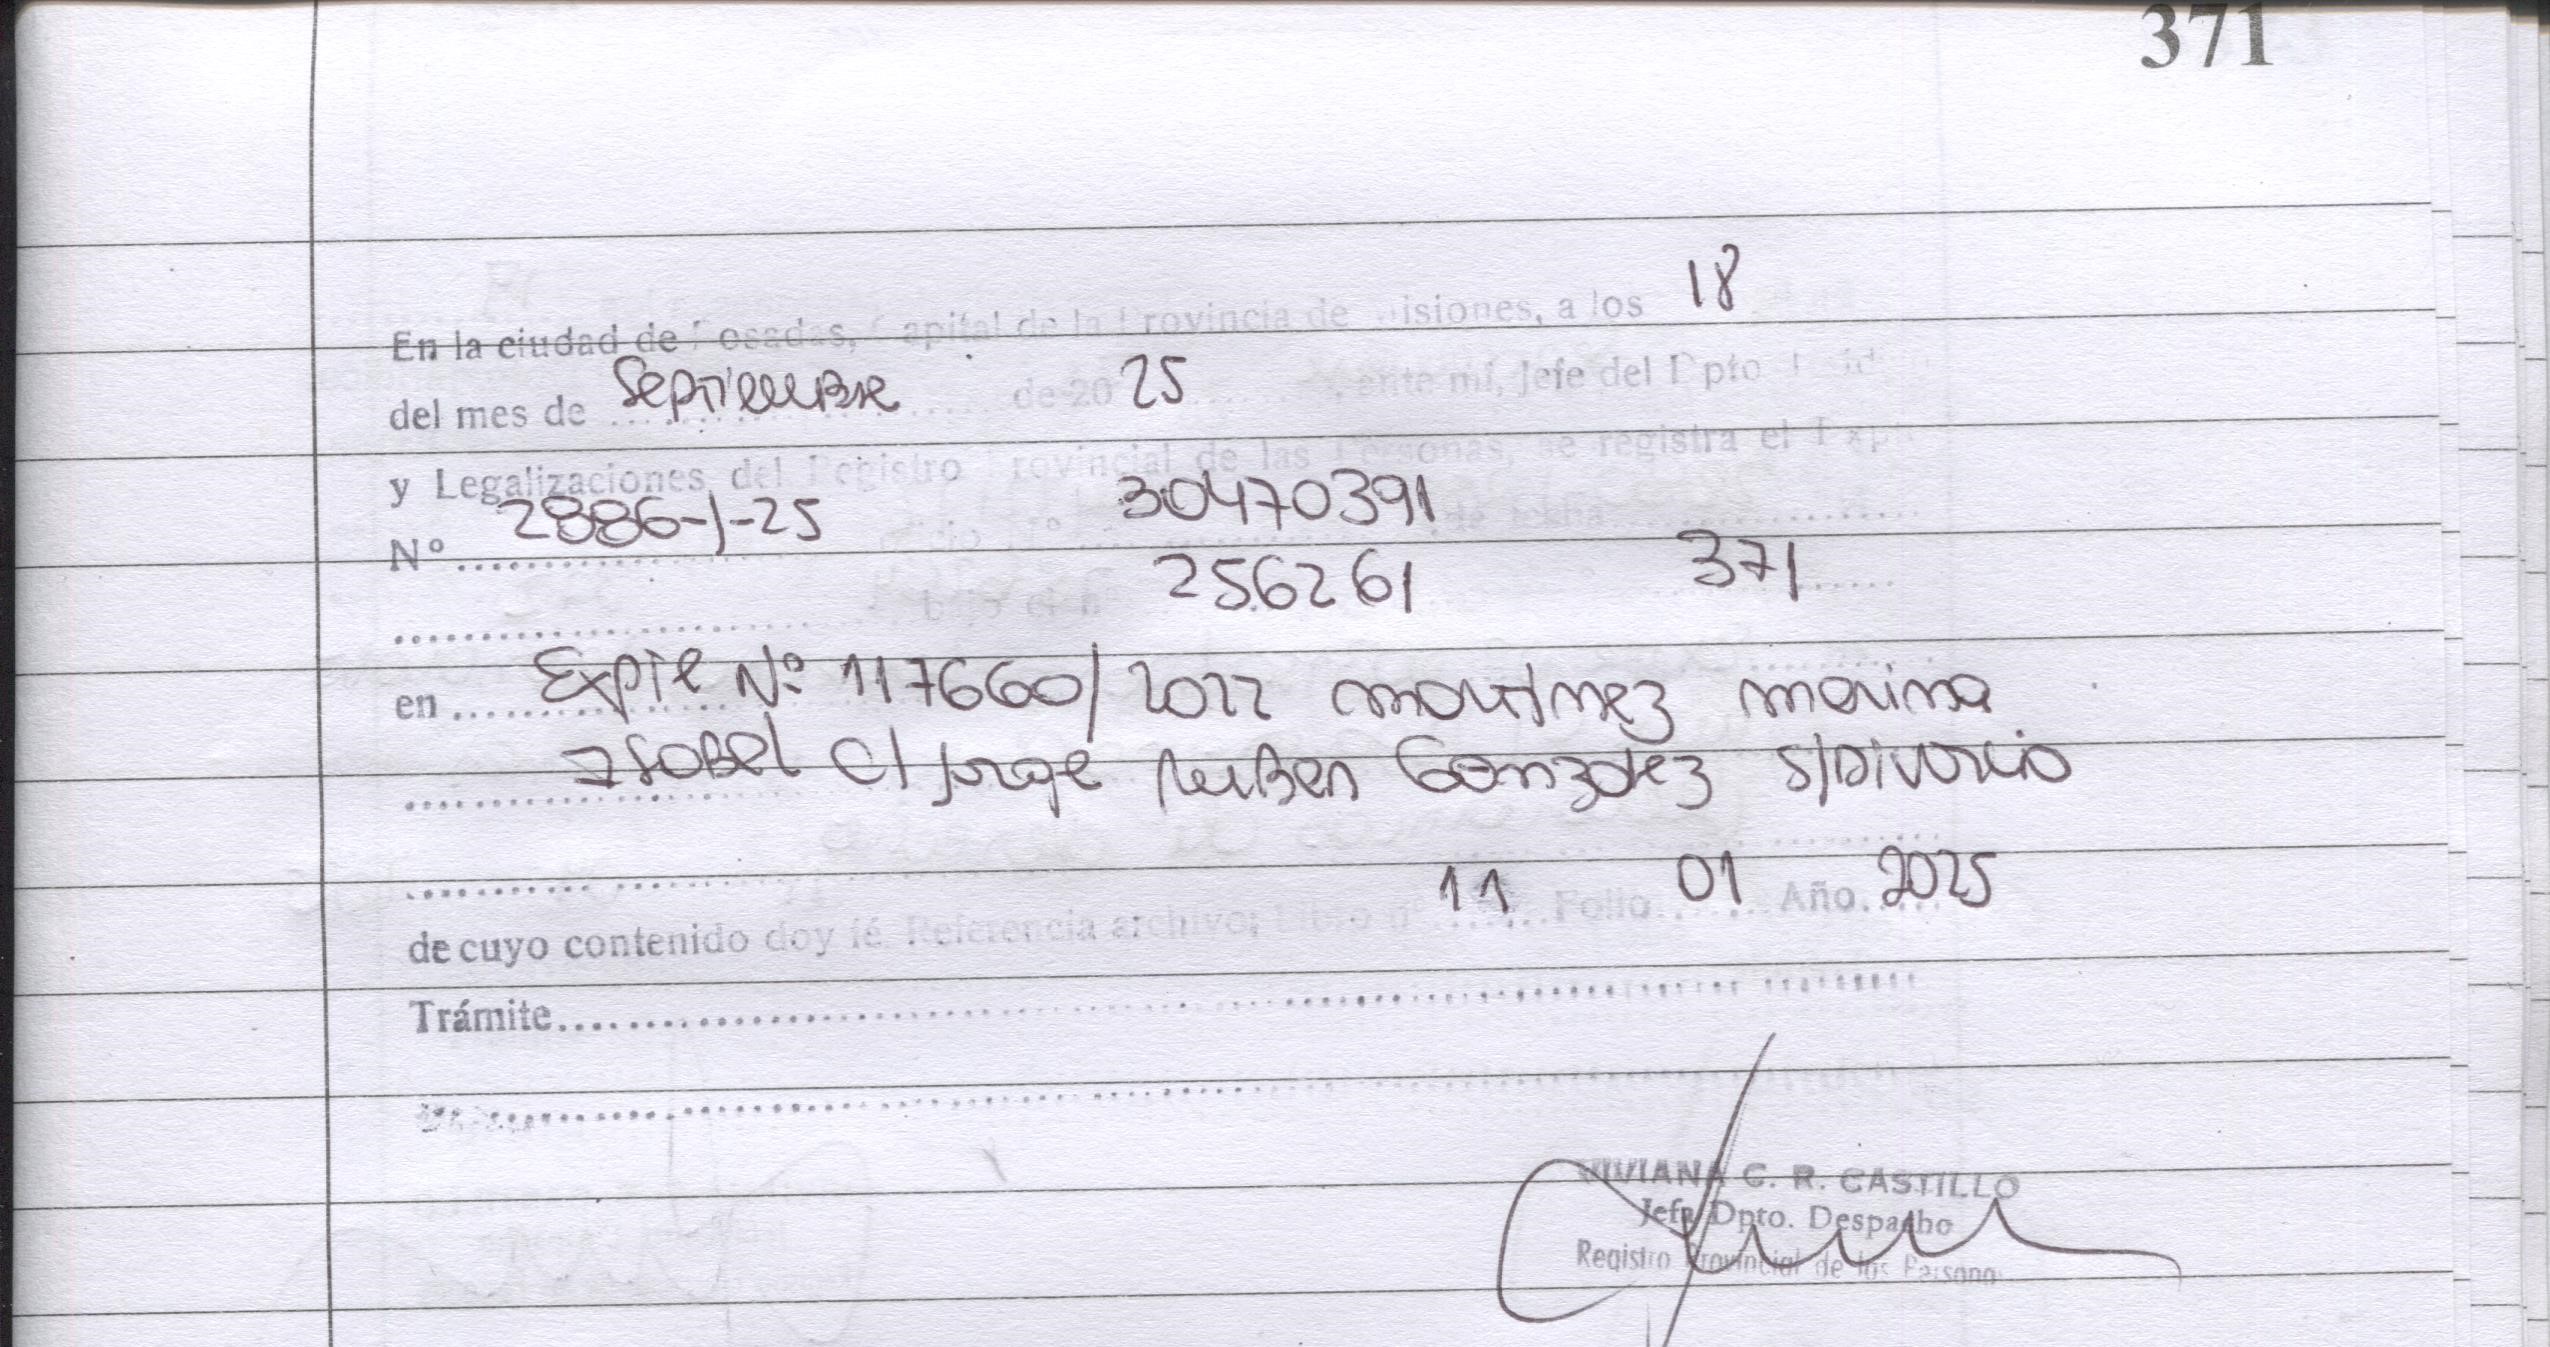 371
En la ciudad de Posadas, Capital de la Provincia de Misiones, a los 18
del mes de Septiembre de 20 25 ante mí, Jefe del Dpto
y Legalizaciones del Registro Provincial de las Personas, se registra el Exp
Nº 2886-J-25 30470391 de fecha
bajo el nº 256261 371
en Expte Nº 117660/2022 Martinez Marina
Isabel C/ Jorge Ruben Gonzalez S/Divorcio
11 01 2025
de cuyo contenido doy fé. Referencia archivo; Libro nº Folio Año
Trámite
VIVIANA C. R. CASTILLO
Jefa Dpto. Despacho
Registro Provincial de las Personas